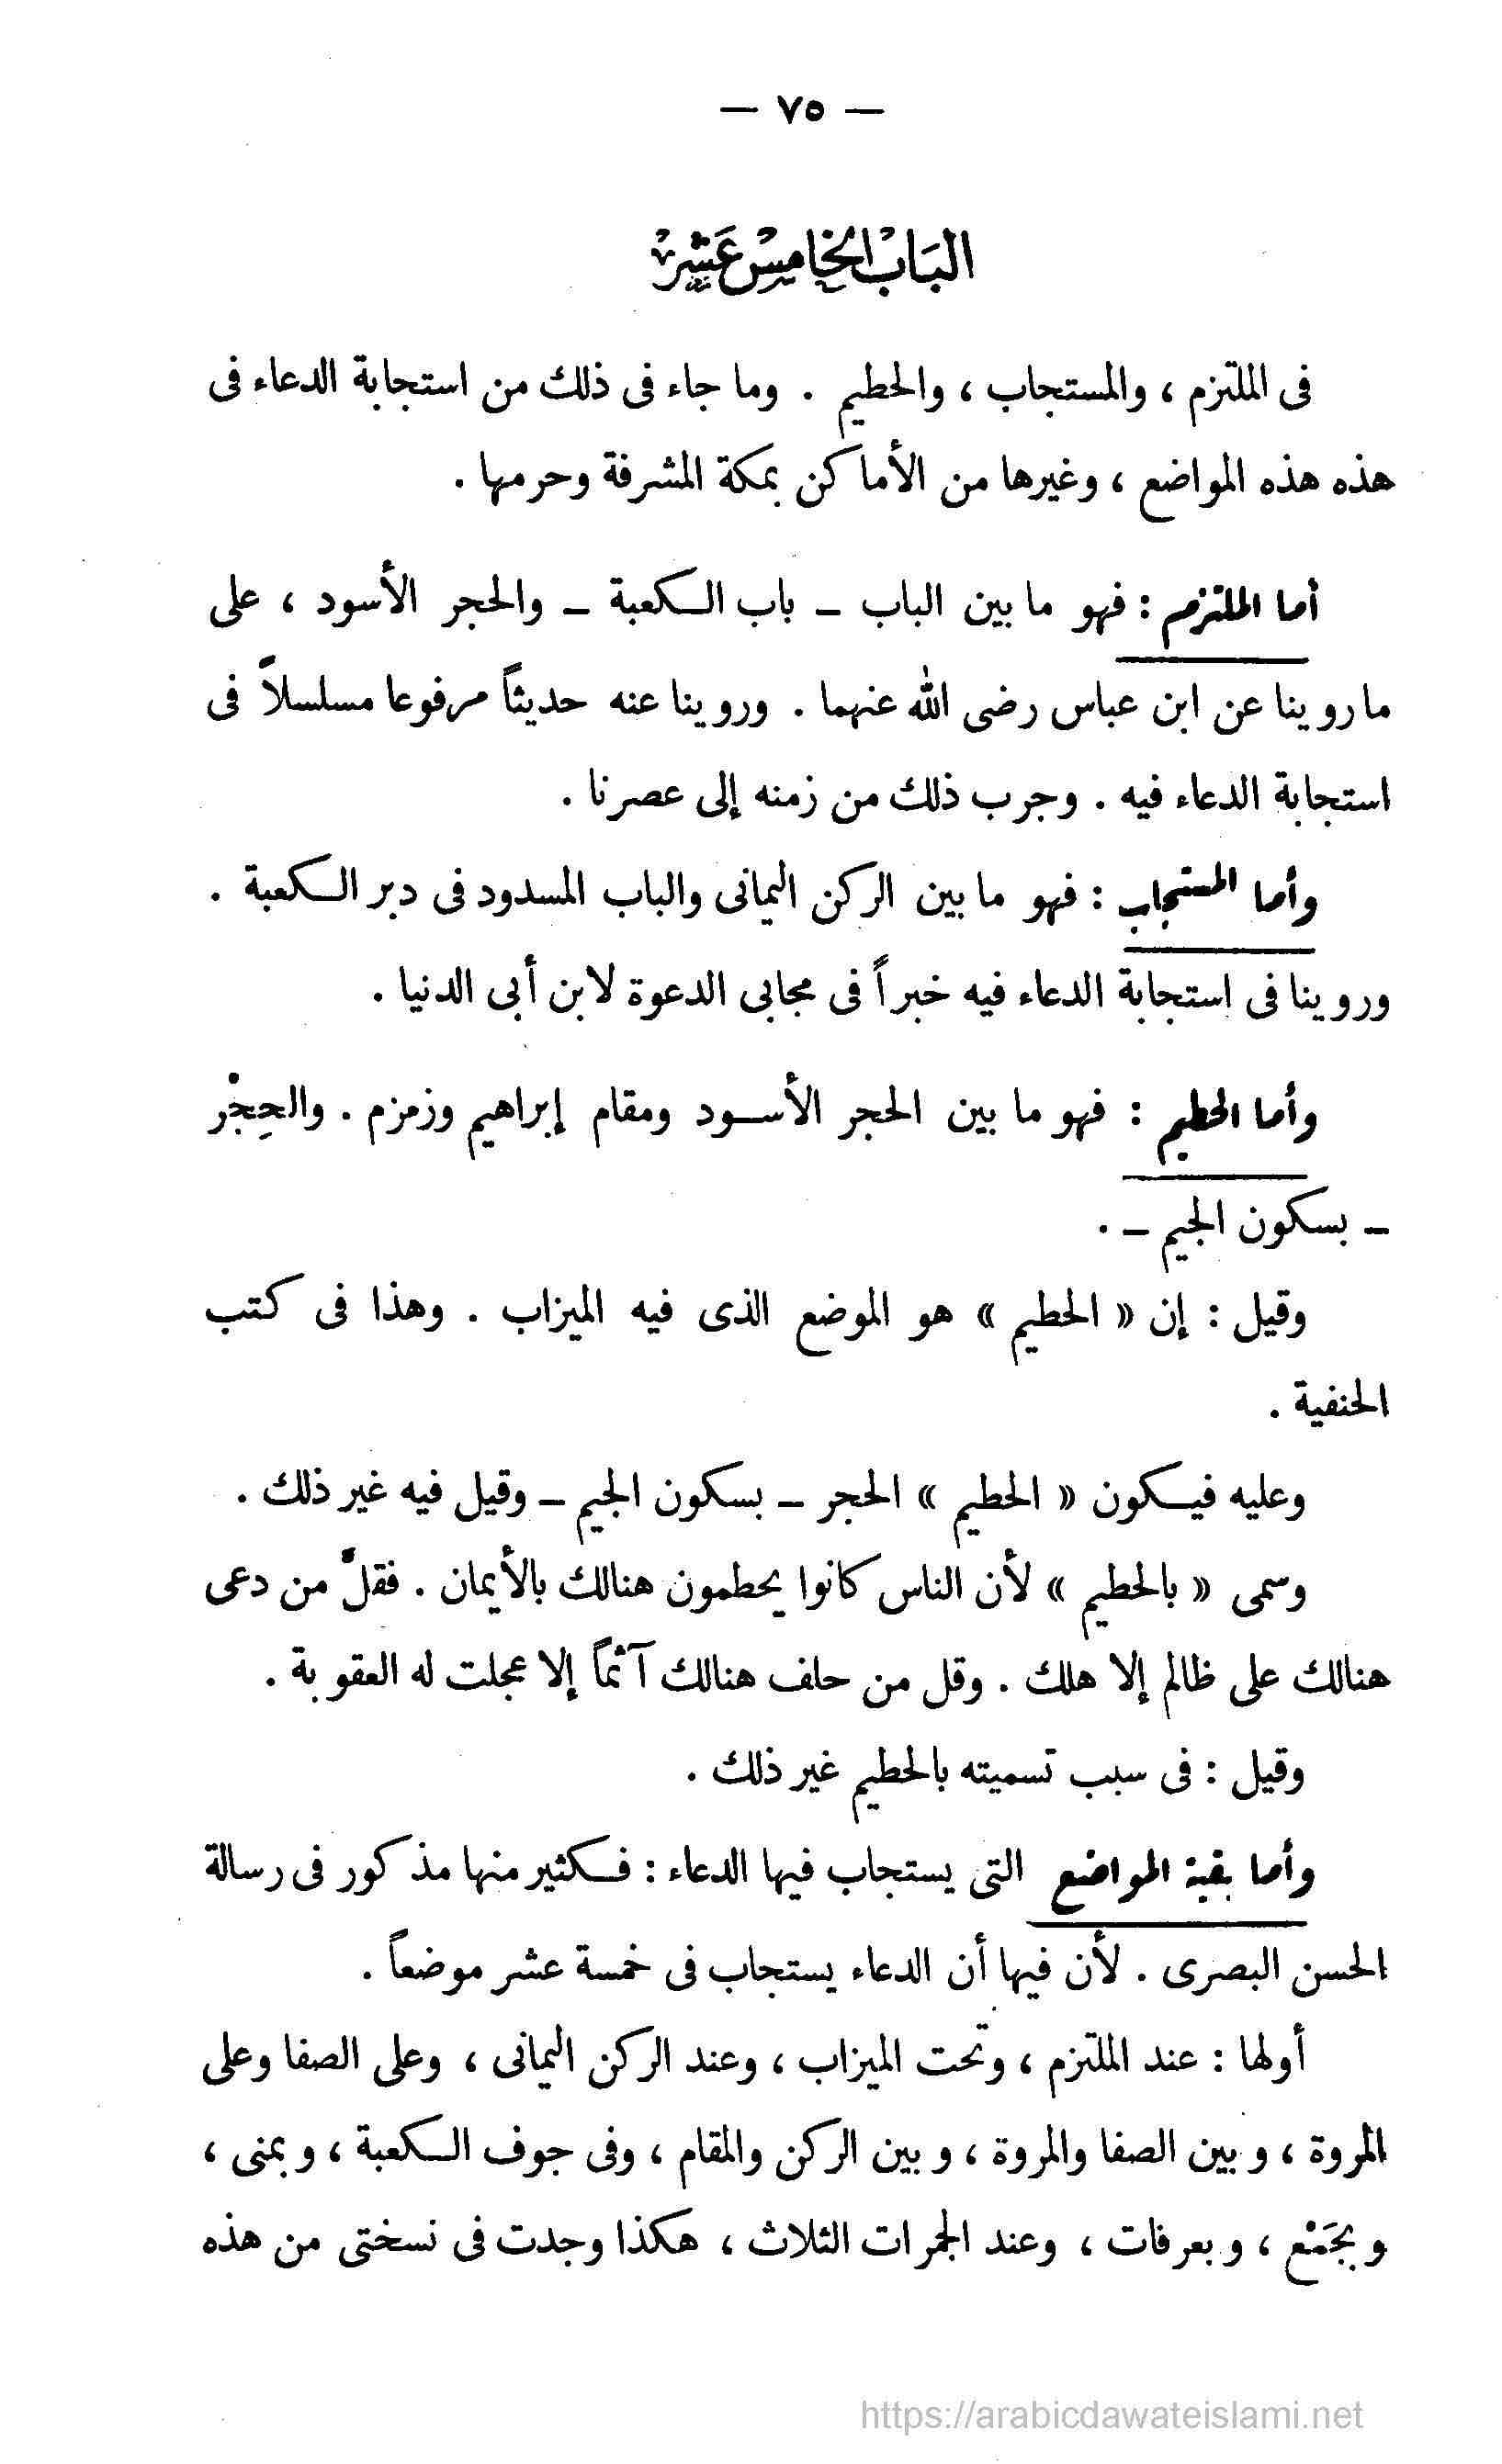 — ٧٥ —
البَابُ الخَامِسُ عَشَر
فى الملتزم ، والمستجاب ، والحطيم . وما جاء فى ذلك من استجابة الدعاء فى
هذه هذه المواضع ، وغيرها من الأماكن بمكة المشرفة وحرمها .
أما الملتزم : فهو ما بين الباب – باب الكعبة – والحجر الأسود ، على
ما روينا عن ابن عباس رضى الله عنهما . وروينا عنه حديثاً مرفوعا مسلسلاً فى
استجابة الدعاء فيه . وجرب ذلك من زمنه إلى عصرنا .
وأما المستجاب : فهو ما بين الركن اليمانى والباب المسدود فى دبر الكعبة .
وروينا فى استجابة الدعاء فيه خبراً فى مجابى الدعوة لابن أبى الدنيا .
وأما الحطيم : فهو ما بين الحجر الأسود ومقام إبراهيم وزمزم . والحِجْر
– بسكون الجيم – .
وقيل : إن « الحطيم » هو الموضع الذى فيه الميزاب . وهذا فى كتب
الحنفية .
وعليه فيكون « الحطيم » الحجر – بسكون الجيم – وقيل فيه غير ذلك .
وسمى « بالحطيم » لأن الناس كانوا يحطمون هنالك بالأيمان . فقلَّ من دعى
هنالك على ظالم إلا هلك . وقل من حلف هنالك آثماً إلا عجلت له العقوبة .
وقيل : فى سبب تسميته بالحطيم غير ذلك .
وأما بقية المواضع التى يستجاب فيها الدعاء : فكثير منها مذكور فى رسالة
الحسن البصرى . لأن فيها أن الدعاء يستجاب فى خمسة عشر موضعاً .
أولها : عند الملتزم ، وتحت الميزاب ، وعند الركن اليمانى ، وعلى الصفا وعلى
المروة ، وبين الصفا والمروة ، وبين الركن والمقام ، وفى جوف الكعبة ، وبمنى ،
وبجَمْع ، وبعرفات ، وعند الجمرات الثلاث ، هكذا وجدت فى نسختى من هذه
https://arabicdawateislami.net